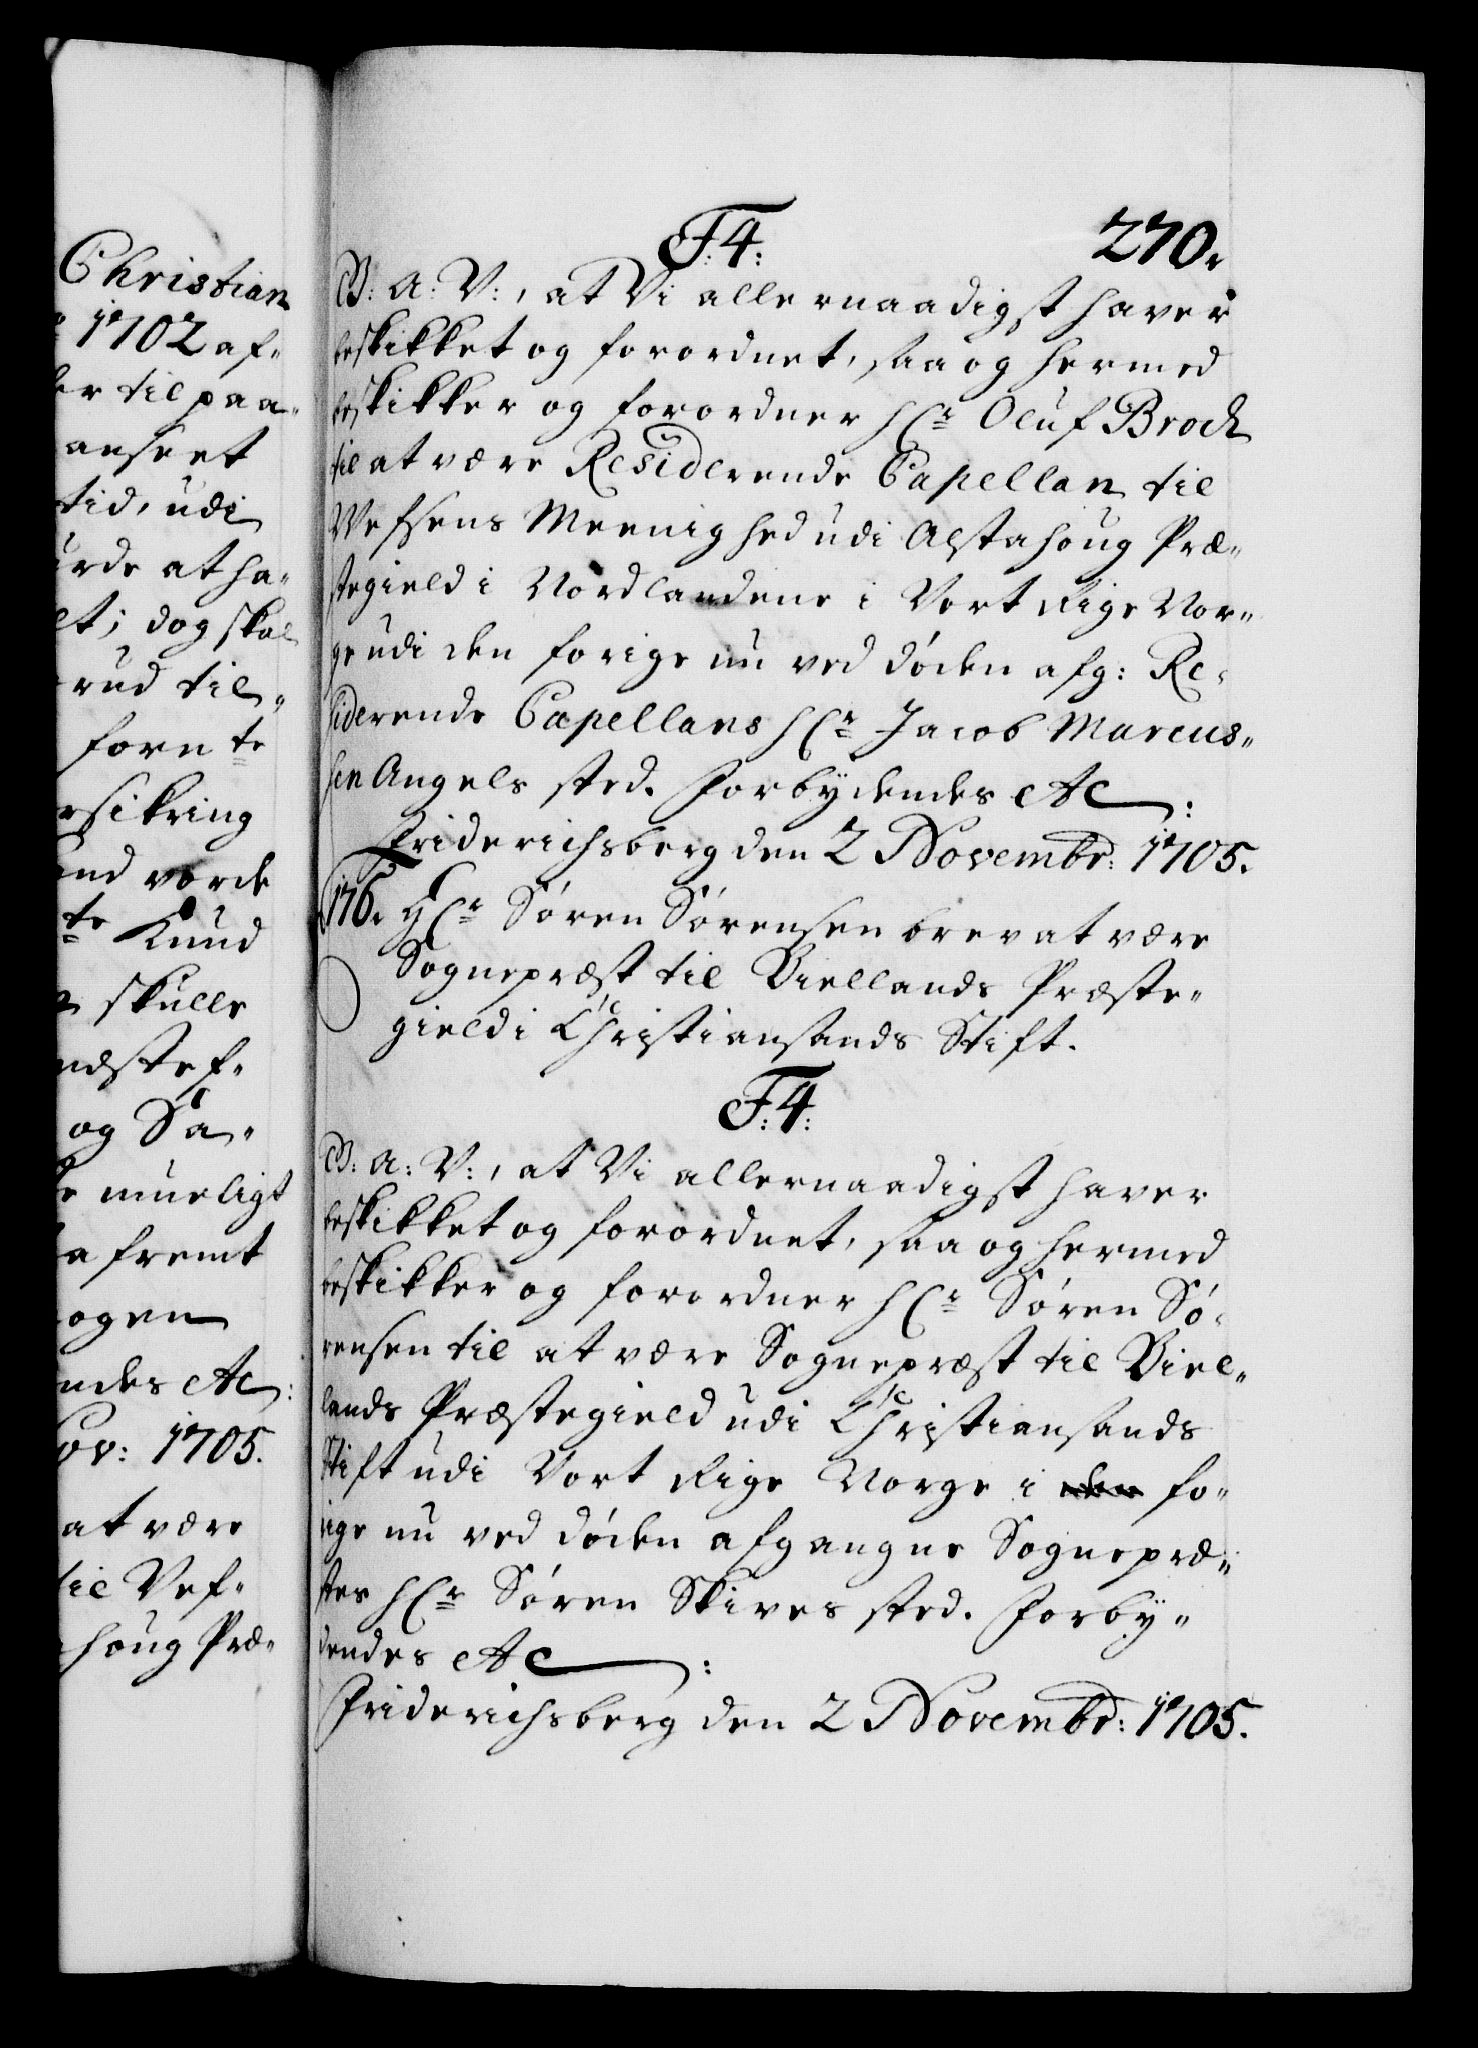 Christian
1702 af-
er til paa-
anseet
tid, udi
urde at ha-
et; dog skal
rud til-
forn te
rsikring
and vorde
te Knud
skulle
næstef-
og Sa-
mueligt
a fremt
ogen
ndes etc:
ov: 1705.
at være
til Vef-
houg Præ-
F: 4: 270.
G: A: V:, at Vi allernaadigst haver
beskikket og forordnet, saa og hermed
beskikker og forordner Hr Oluf Broch
til at være Residerende Capellan til
Wefsens Meenighed udi Alstahoug Præ-
stegield i Nordlandene i Vort Rige Nor-
ge udi den forige nu ved döden afg: Re-
siderende Capellans Hr Jacob Marcus-
sen Angels sted. Forbydendes etc:
Friderichsberg den 2 Novembr: 1705.
176. Hr Sören Sörensen brev at være
Sognepræst til Biellands Præste-
gield i Christiansands Stift.
F: 4:
G: A: V:, at Vi allernaadigst haver
beskikket og forordnet, saa og hermed
beskikker og forordner Hr Sören Sö-
rensen til at være Sognepræst til Biel-
lands Præstegield udi Christiansands
Stift udi Vort Rige Norge i den fo-
rige nu ved döden afgangne Sognepræ-
stes Hr Sören Skives sted. Forby-
dendes etc:
Friderichsberg den 2 Novembr: 1705.